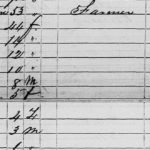 53 " Farmer
44 f
14 "
12 "
10 "
8 m
5 f
4 f
3 m